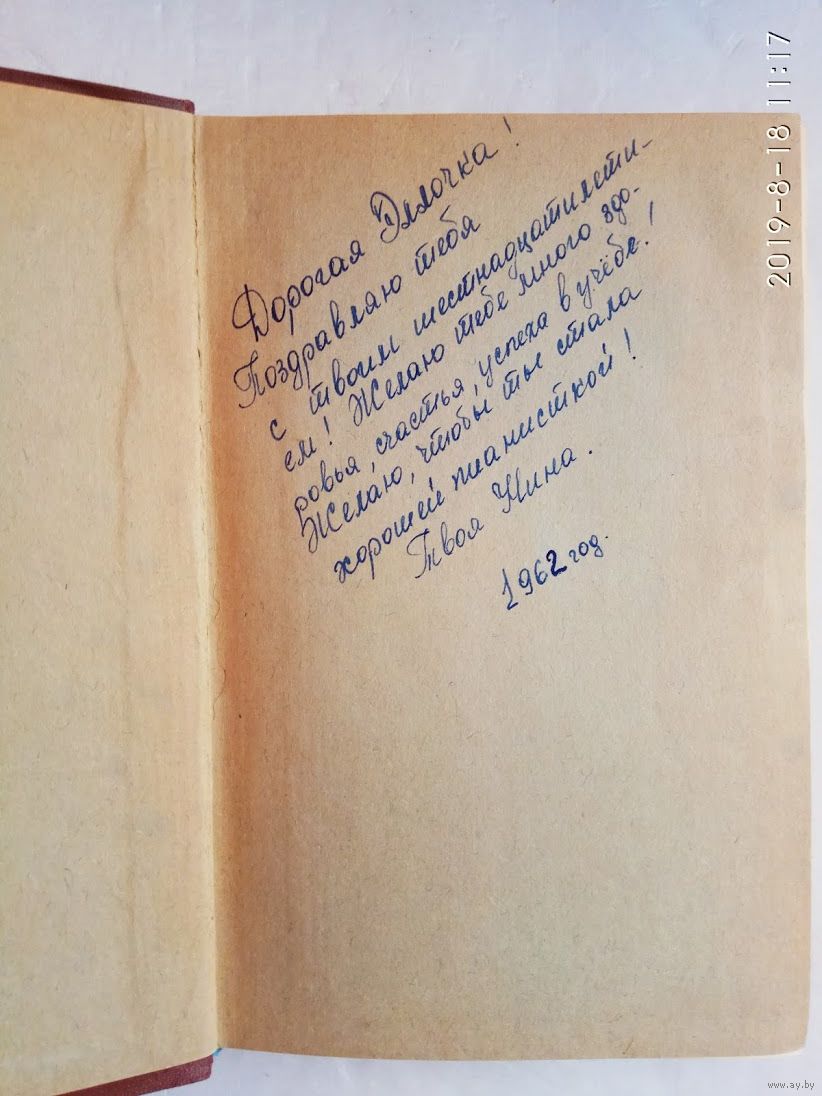 Дорогая Эллочка!
Поздравляю тебя
с твоим шестнадцатилети-
ем! Желаю тебе много здо-
ровья, счастья, успеха в учёбе!
Желаю, чтобы ты стала
хорошей пианисткой!
Твоя Нина.
1962 год.
2019-8-18 11:17
www.ay.by